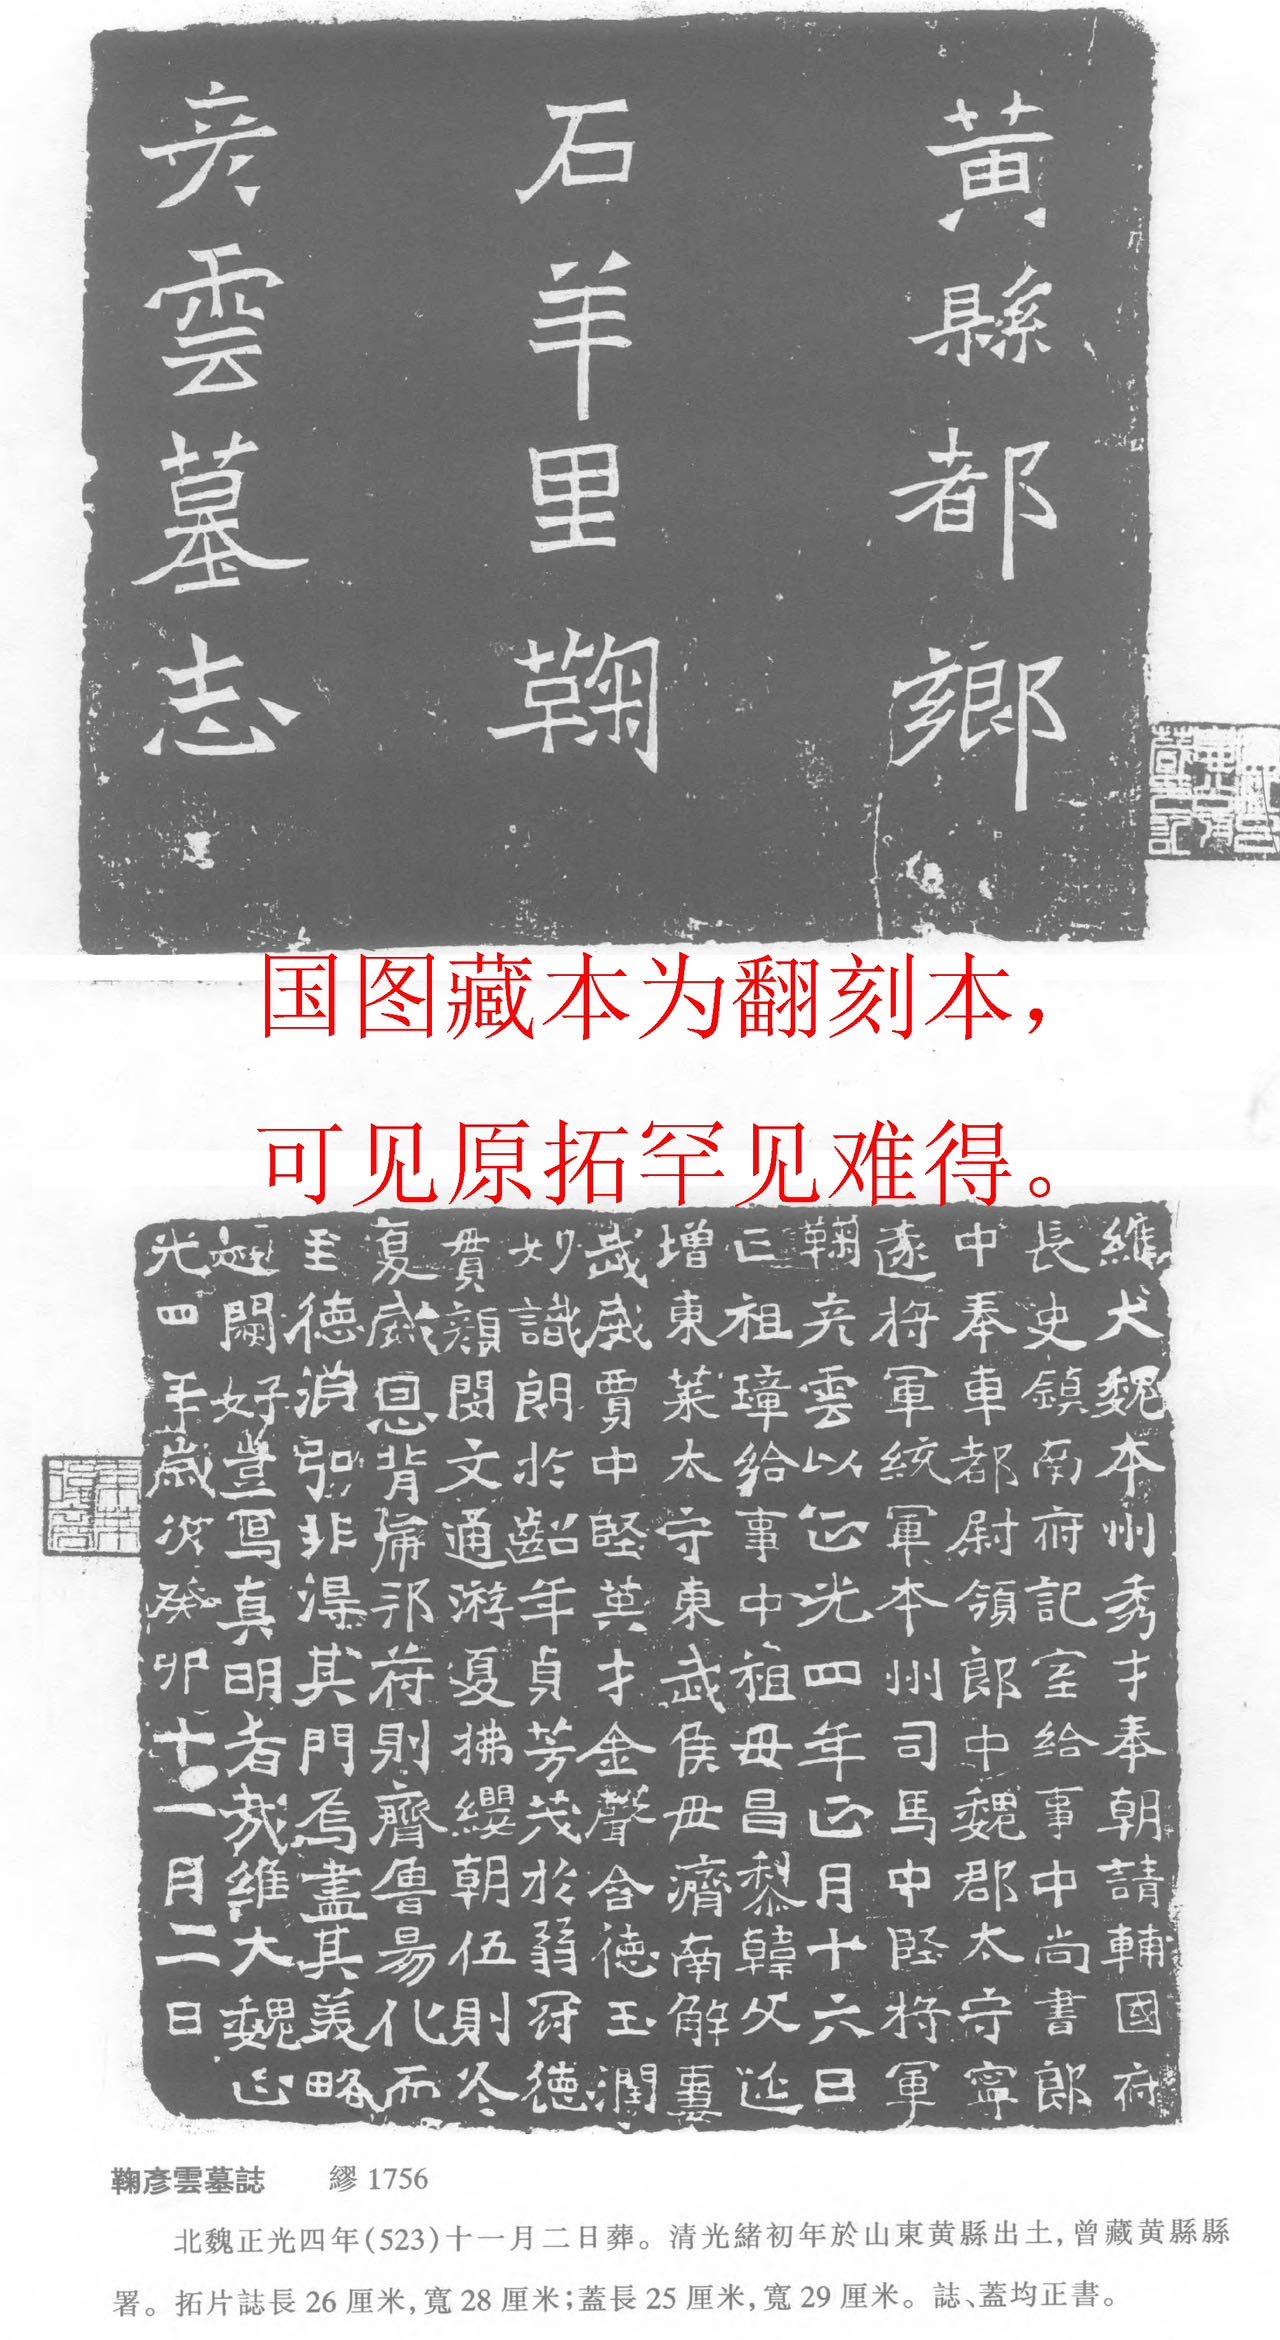 黃縣都鄉
石羊里鞠
彥雲墓志
国图藏本为翻刻本，
可见原拓罕见难得。
維大魏本州秀才奉朝請輔國府
長史鎮南府記室給事中尚書郎
中奉車都尉領郎中魏郡太守寧
遠將軍統軍本州司馬中堅將軍
鞠彥雲以正光四年正月十六日
亡祖璋給事中祖母昌黎韓父延
增東萊太守東武侯母濟南解妻
武威賈中堅英才金聲含德玉潤
妙識朗於齠年貞芳茂於弱冠德
貫顏閔文通游夏拂纓朝伍則冬
夏威恩邦符則齊魯易化而
至德淵弘非淂其門焉盡其美略
闕好豈寫真明者哉維大魏正
光四年歲次癸卯十一月二日
鞠彥雲墓誌 繆1756
北魏正光四年(523)十一月二日葬。清光緒初年於山東黄縣出土,曾藏黄縣縣
署。拓片誌長26厘米,寬28厘米;蓋長25厘米,寬29厘米。誌、蓋均正書。